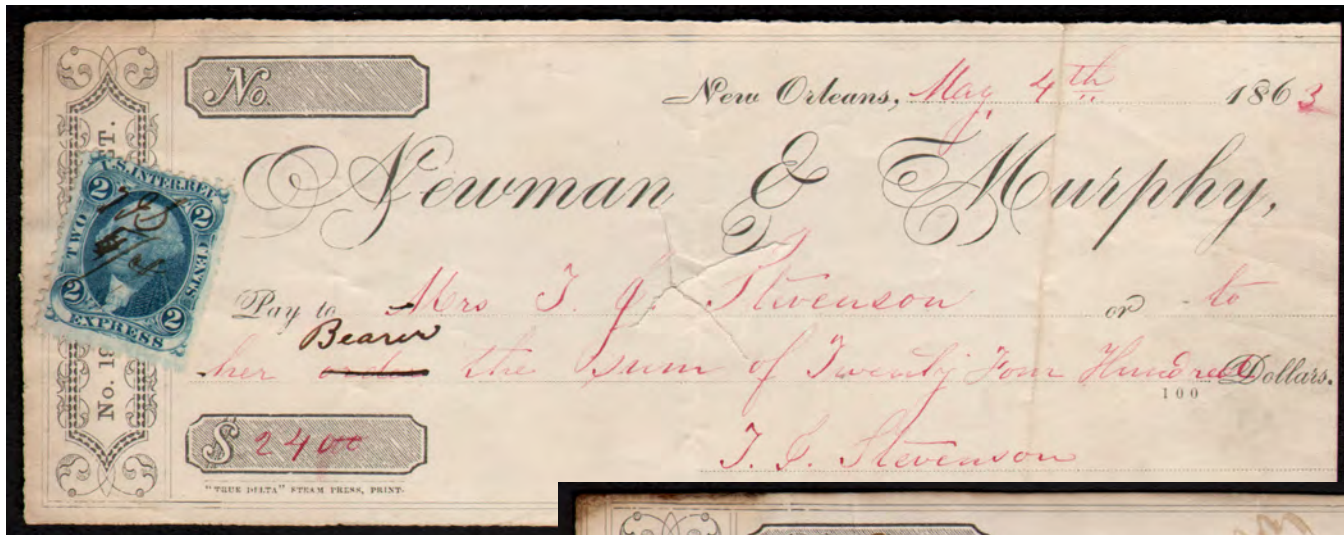 No.
New Orleans, May 4th 1863
Newman & Murphy,
Pay to Mrs T. J. Stevenson or to
Bearer
her order the Sum of Twenty Four Hundred Dollars.
100
$ 2400
T. J. Stevenson
"TRUE DELTA" STEAM PRESS, PRINT.
No. 19 ST.
U.S. INTER. REV.
2 2
TWO CENTS
2 2
EXPRESS